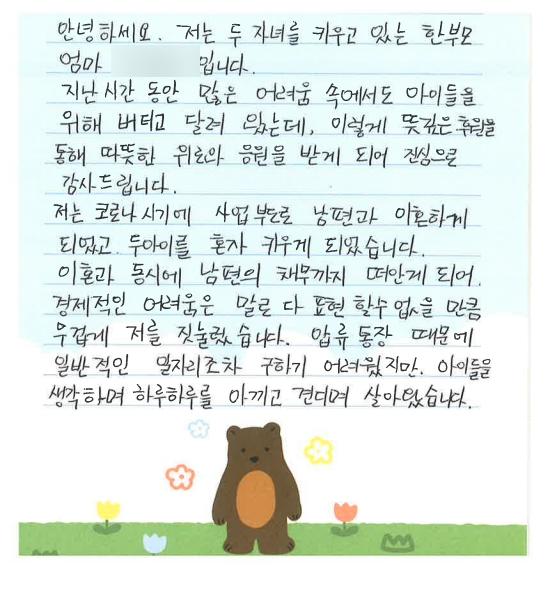 안녕하세요. 저는 두 자녀를 키우고 있는 한부모
엄마 입니다.
지난 시간 동안 많은 어려움 속에서도 아이들을
위해 버티고 달려 왔는데, 이렇게 뜻깊은 후원을
통해 따뜻한 위로와 응원을 받게 되어 진심으로
감사드립니다.
저는 코로나시기에 사업부도로 남편과 이혼하게
되었고. 두아이를 혼자 키우게 되었습니다.
이혼과 동시에 남편의 채무까지 떠안게 되어.
경제적인 어려움은 말로 다 표현 할수 없을 만큼
무겁게 저를 짓눌렀습니다. 압류통장 때문에
일반적인 일자리조차 구하기 어려웠지만. 아이들을
생각하며 하루하루를 아끼고 견디며 살아왔습니다.